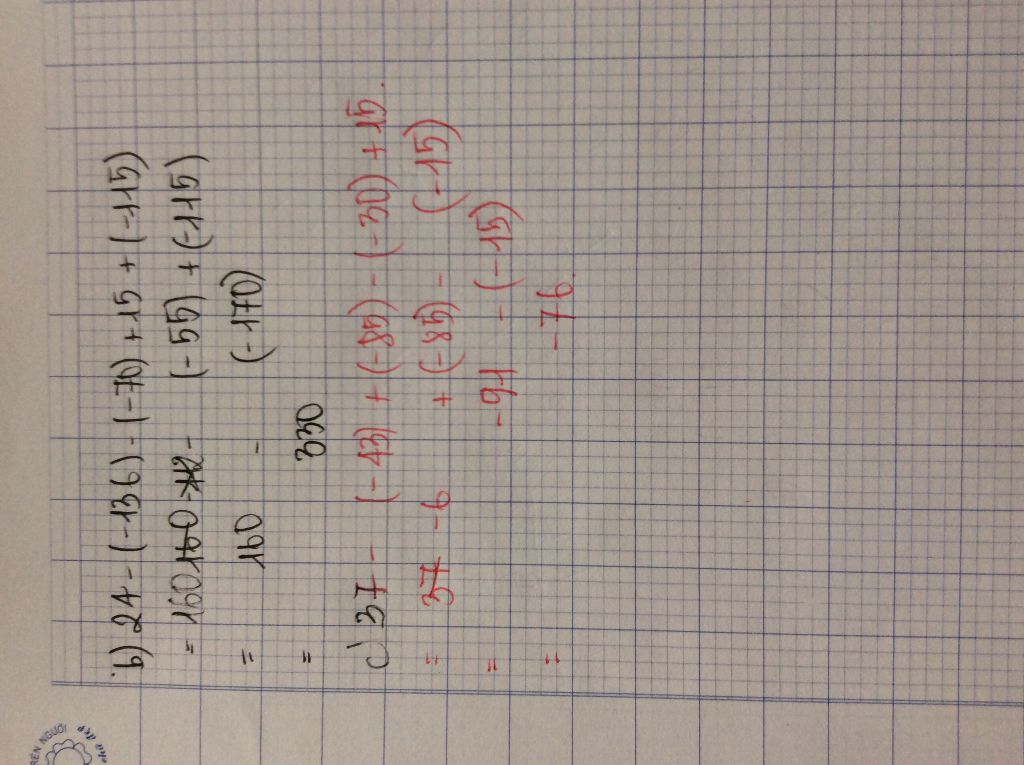 b) 24 - (-136) - (-70) + 15 + (-115)
= 160 - (-55) + (-115)
= 160 - (-170)
= 330
c) 37 - (-43) + (-85) - (-30) + 15.
= -6 + (-85) - (-15)
= -91 - (-15)
= -76.
RÈN NGƯỜI
chữ đẹp